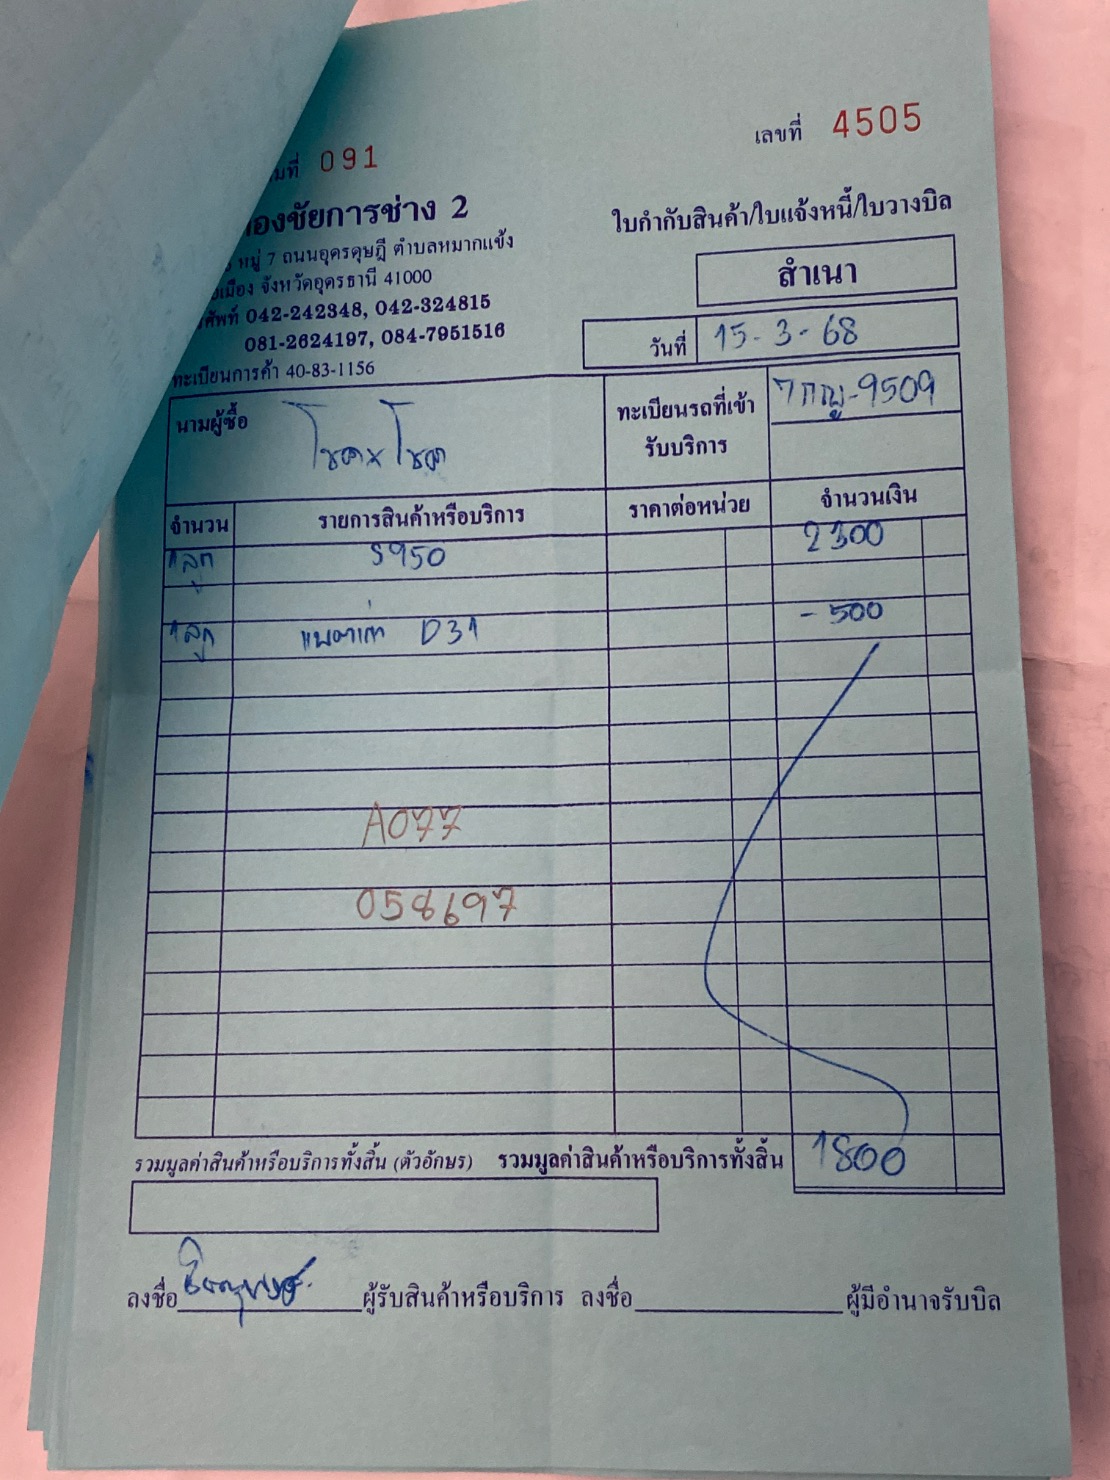 มที่ 091
เลขที่ 4505
องชัยการช่าง 2
ใบกำกับสินค้า/ใบแจ้งหนี้/ใบวางบิล
หมู่ 7 ถนนอุดรดุษฎี ตำบลหมากแข้ง
เมือง จังหวัดอุดรธานี 41000
สำเนา
ศัพท์ 042-242348, 042-324815
081-2624197, 084-7951516
วันที่ 15-3-68
ทะเบียนการค้า 40-83-1156
นามผู้ซื้อ โชคxโชค
ทะเบียนรถที่เข้ารับบริการ 7กญ-9509
จำนวน รายการสินค้าหรือบริการ ราคาต่อหน่วย จำนวนเงิน
1ลูก S950 2300
1ลูก แบตเก่า D31 -500
A077
058697
รวมมูลค่าสินค้าหรือบริการทั้งสิ้น (ตัวอักษร) รวมมูลค่าสินค้าหรือบริการทั้งสิ้น 1800
ลงชื่อ ผู้รับสินค้าหรือบริการ ลงชื่อ ผู้มีอำนาจรับบิล